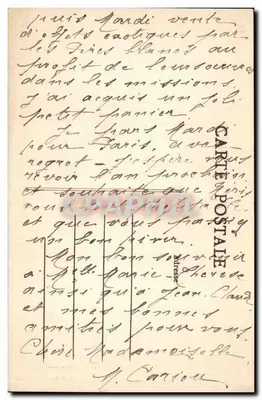 puis Mardi vente
d'objets exotiques par
les Pères blancs au
profit de leurs oeuvres
dans les missions.
J'ai acquis un joli
petit panier
Je pars Mardi
pour Paris, avec
regret - J'espère vous
revoir l'an prochain
et souhaite que
vous
et que vous passiez
un bon hiver.
Mon bon souvenir
à Melle Marie Thérèse
ainsi qu'à Jean-Claude
et mes bonnes
amitiés pour vous
Chère Mademoiselle
M. Cariou
CARTE POSTALE
Adresse
CPAPHIL